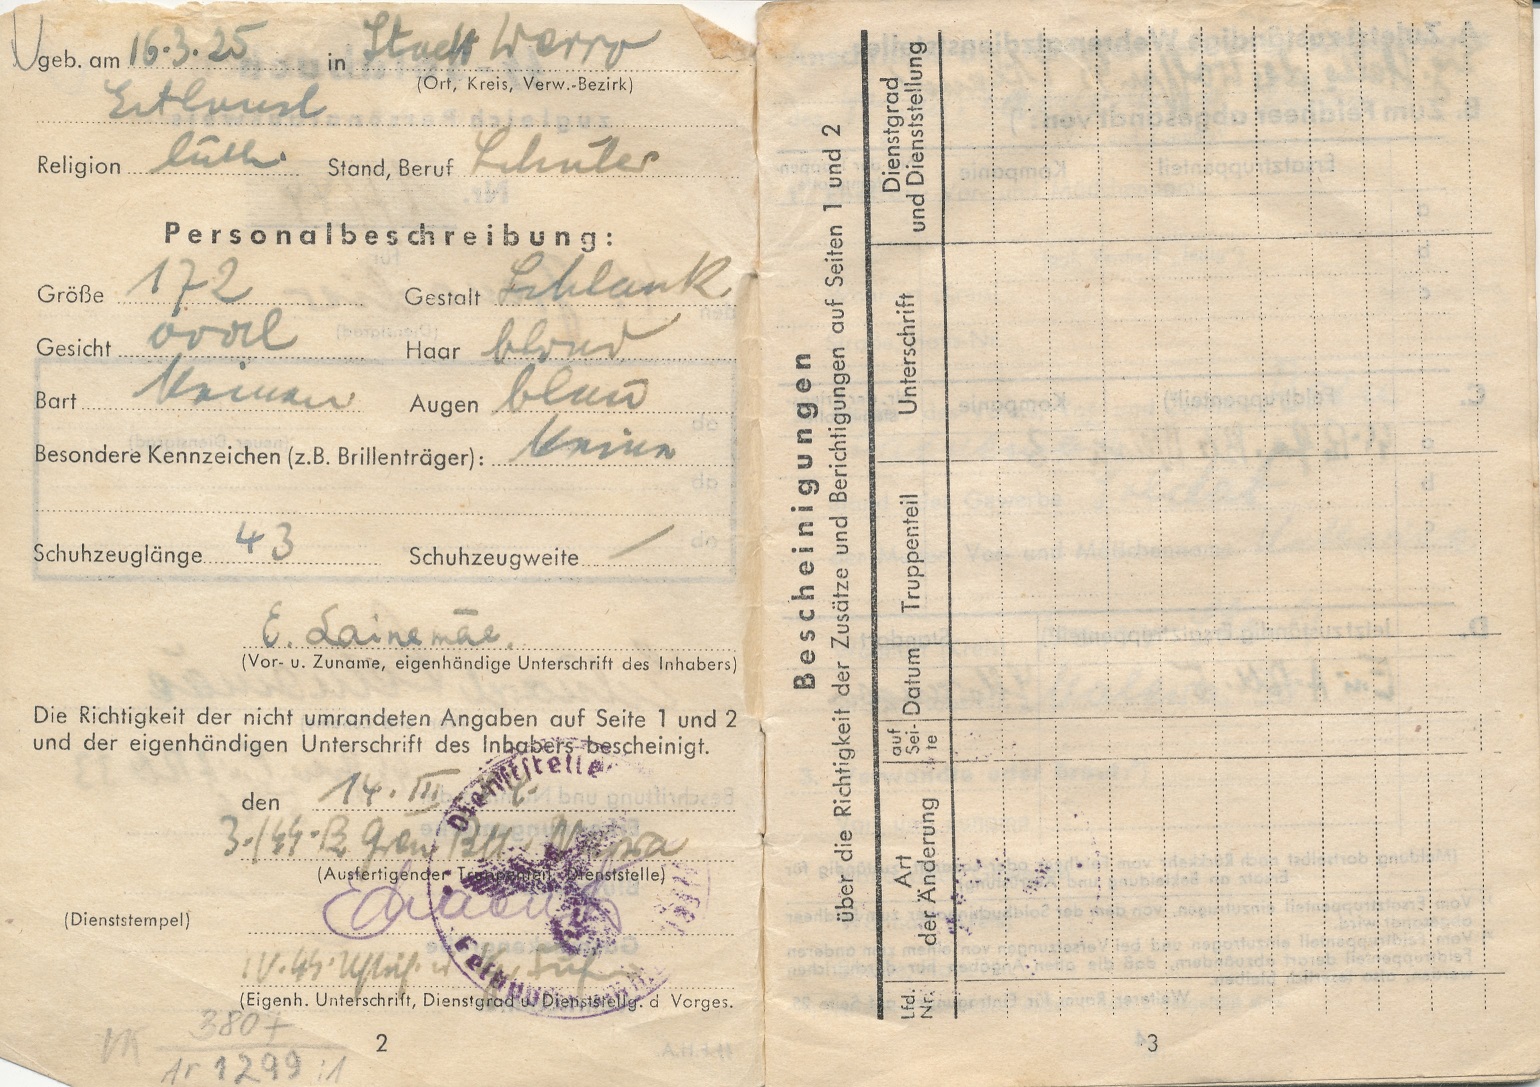 geb. am 16.3.25 in Stadt Werro
(Ort, Kreis, Verw.-Bezirk)
Estland
Religion luth. Stand, Beruf Schüler
Personalbeschreibung:
Größe 172 Gestalt Schlank
Gesicht oval Haar blond
Bart Keinen Augen blau
Besondere Kennzeichen (z.B. Brillenträger): Keine
Schuhzeuglänge 43 Schuhzeugweite /
E. Lainemäe.
(Vor- u. Zuname, eigenhändige Unterschrift des Inhabers)
Die Richtigkeit der nicht umrandeten Angaben auf Seite 1 und 2
und der eigenhändigen Unterschrift des Inhabers bescheinigt.
den 14. III
3./SS-
(Ausfertigender Truppenteil, Dienststelle)
(Dienststempel)
Dienststelle
Feldpost
(Eigenh. Unterschrift, Dienstgrad u. Dienststellg. d Vorges.
3807
Ar 1299
2
Bescheinigungen
über die Richtigkeit der Zusätze und Berichtigungen auf Seiten 1 und 2
Lfd. Nr.
Art der Änderung
auf Sei- te
Datum
Truppenteil
Unterschrift
Dienstgrad und Dienststellung
3